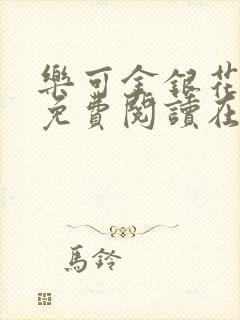 樂可金銀花
免費閱讀在
馬鈴